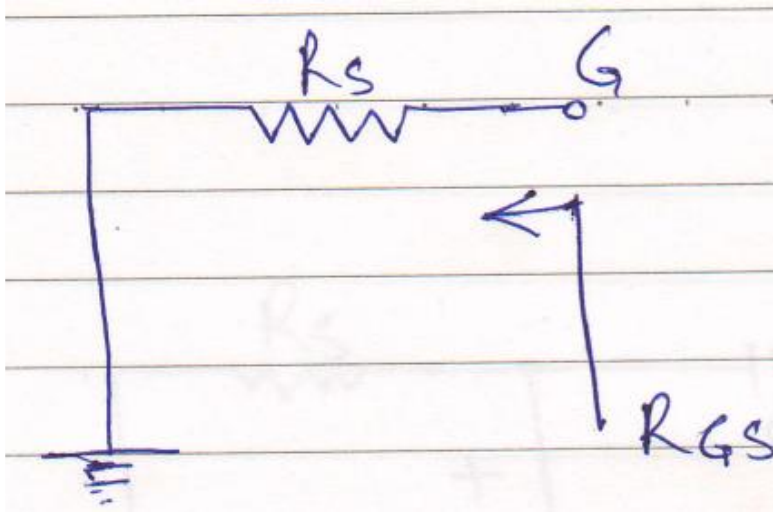 Rs G
RGS